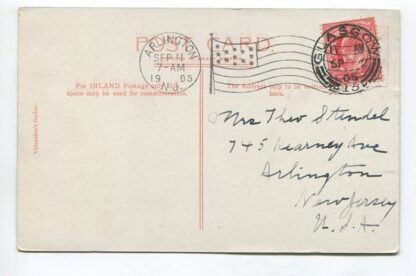 POST CARD
ARLINGTON
SEP 11
7-AM
1905
N.J.
GLASGOW
SP
05
For INLAND Postage only this
space may be used for communication.
The Address only to be
here.
Valentine's Series
Mrs Theo Stendel
745 Kearney Ave
Arlington
New Jersey
U.S.A.